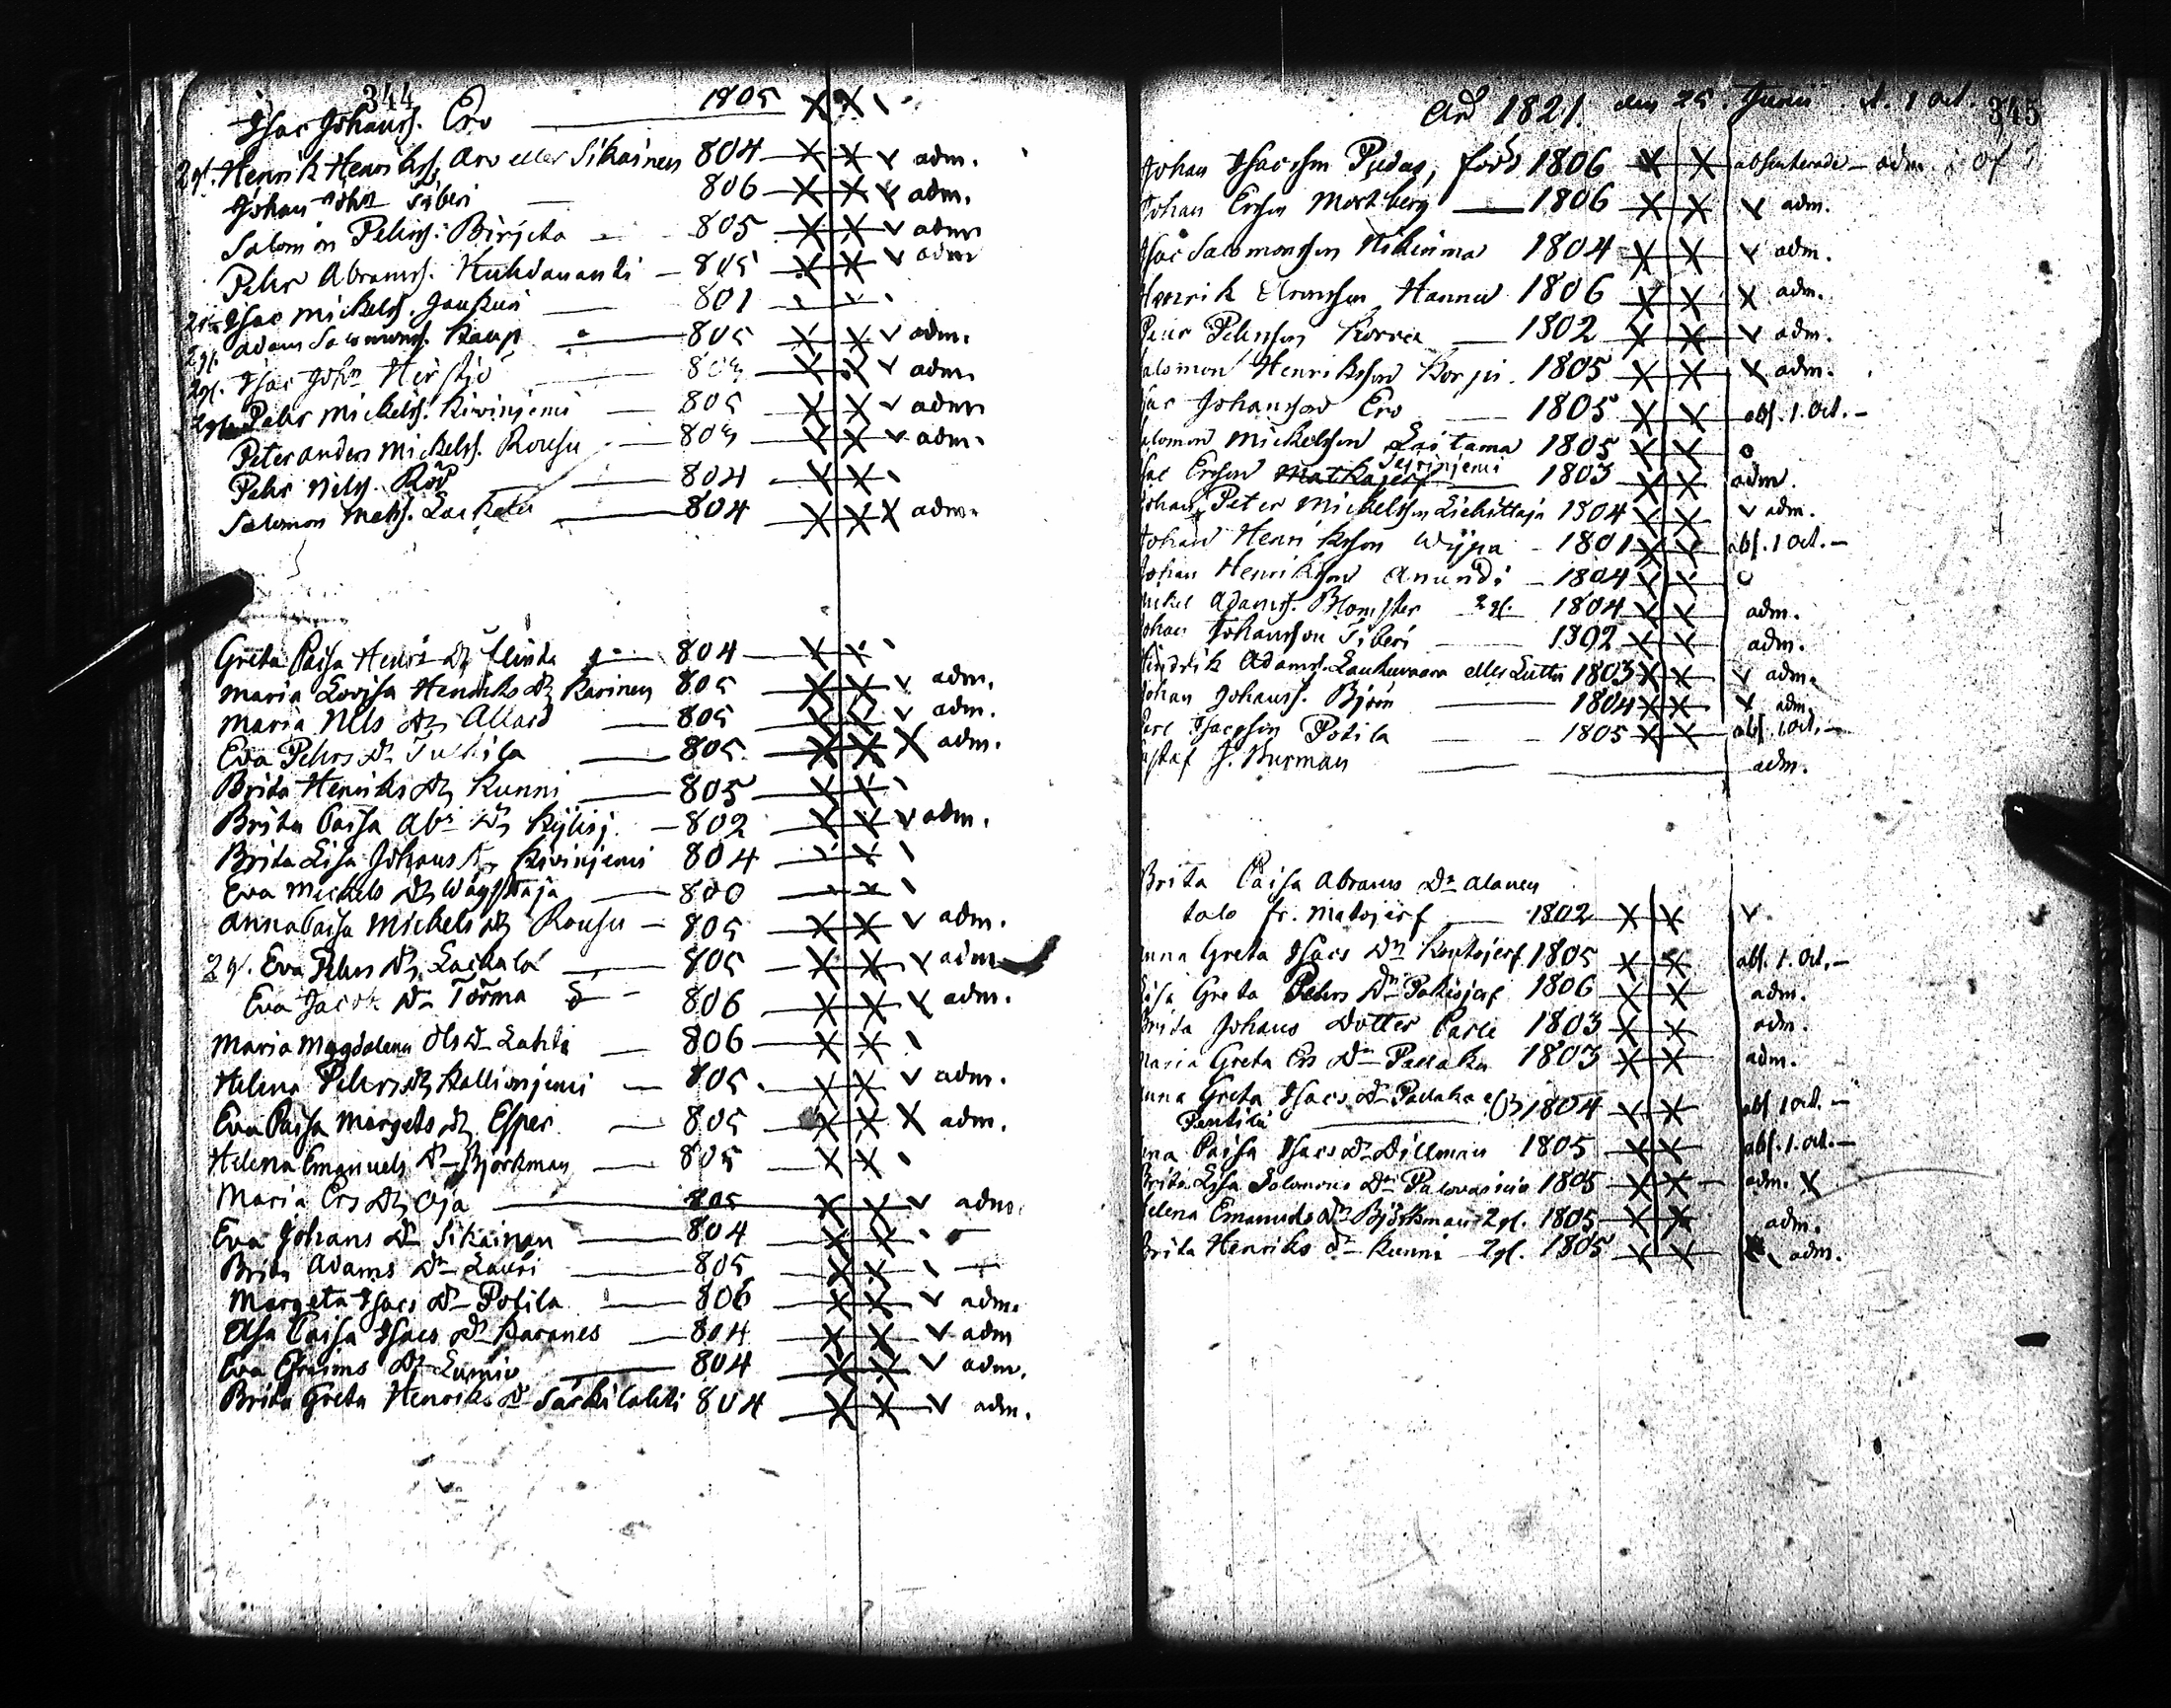 344
Isac Johanss. Ero 1805 X X
2 g. Henrik Henrikss. Aro eller Sikainen 804 X X v adm.
Johan Joh:n Siberi 806 X X v adm.
Salomon Pehrss. Birjeta 805 X X v adm
Pehr Abramss. Kuhdananti 805 X X v adm
Isac Mickelss. Jaukuri 801
2 g. Adam Salomonss. Kaup 805 X X v adm.
2 g. Isac Joh:n Hirstiö 803 X X v adm.
Pehr Mickelss. Kivinjemi 805 X X v adm
Peter Anders Mickelss. Rousu 803 X X v adm.
Pehr Nilss. Röd 804 X X
Salomon Matss. 804 X X X adm.
Greta Caisa Henr:s Dr Clinta 804 X X
Maria Lovisa Henriks Dr Karinen 805 X X v adm.
Maria Nils Dr Allard 805 X X v adm.
Eva Pehrs Dr Tulkila 805 X X X adm.
Brita Henriks Dr Kunni 805 X X
Brita Caisa Ab:s Dr Kylisj. 802 X X v adm.
Brita Lisa Johans Dr Kivinjemi 804
Eva Mickels Dr 800
Anna Caisa Mickels Dr Rousu 805 X X v adm.
2 g. Eva Pehrs Dr Lackala 805 X X v adm
Eva Jacobs Dr Törmä 806 X X X adm.
Maria Magdalena Ols Dr Lahti 806 X X
Helena Pehrs Dr Kallionjemi 805. X X v adm.
Eva Caisa Margets Dr Esper 805 X X X adm.
Helena Emanuels Dr Björkman 805 X X
Maria Ers Dr Oja 805 X X v adm.
Eva Johans Dr Sikainen 804 X X
Brita Adams Dr Lauri 805 X X
Margeta Isacs Dr Potila 806 X X v adm.
Elsa Caisa Isacs Dr Karanes 804 X X v adm
Eva Efraims Dr Lumio 804 X X v adm.
Brita Greta Henriks Dr Särkilahti 804 X X v adm.
År 1821. den 25. Junii d. 1 Oct. 345
Johan Isacsson Pudas, född 1806 X X absenterade – adm.
Johan Ersson Mortberg 1806 X X v adm.
Isac Salomonsson Niskinma 1804 X X v adm.
Henrik Hannu 1806 X X X adm.
Pehrsson Korva 1802 X X v adm.
Salomon Henriksson Korpi 1805 X X X adm.
Isac Johansson Ero 1805 X X abs. 1. Oct. –
Salomon Mickelsson Laitama 1805 X X o
Isac Ersson Matkajerf 1803 X X adm.
Johan Peter Mickelsson Liehittaja 1804 X X v adm.
Johan Henriksson Wypa 1801 X X abs. 1 Oct. –
Johan Henriksson Anundi 1804 X X o
Mickel Adamss. Blomster 2 g. 1804 X X adm.
Johan Johansson Siberi 1802 X X adm.
Hindrik Adamss. Laukuvaara eller Lutto 1803 X X v adm.
Johan Johanss. Björn 1804 X X v adm.
Carl Isacsson Potila 1805 X X abs. 1 Oct. –
Gustaf J. Burman adm.
Brita Caisa Abrams Dr Alanen
talo fr. Matojerf 1802 X X v
Anna Greta Isacs Dr Kentojerf 1805 X X abs. 1. Oct. –
Lisa Greta Pehrs Dr Pakisjerf 1806 X X adm.
Brita Johans Dotter Carle 1803 X X adm.
Maria Greta Ers Dr Padaka 1803 X X adm.
Anna Greta Isacs Dr Padaka 1804 X X abs. 1 Oct. –
Pentili
Caisa Isacs Dr Dillman 1805 X X abs. 1. Oct. –
Brita Lisa Salomons Dr Palovainio 1805 X X adm. X
Helena Emanuels Dr Björkman 2 g. 1805 X X adm.
Brita Henriks Dr Kunni 2 g. 1805 X X adm.